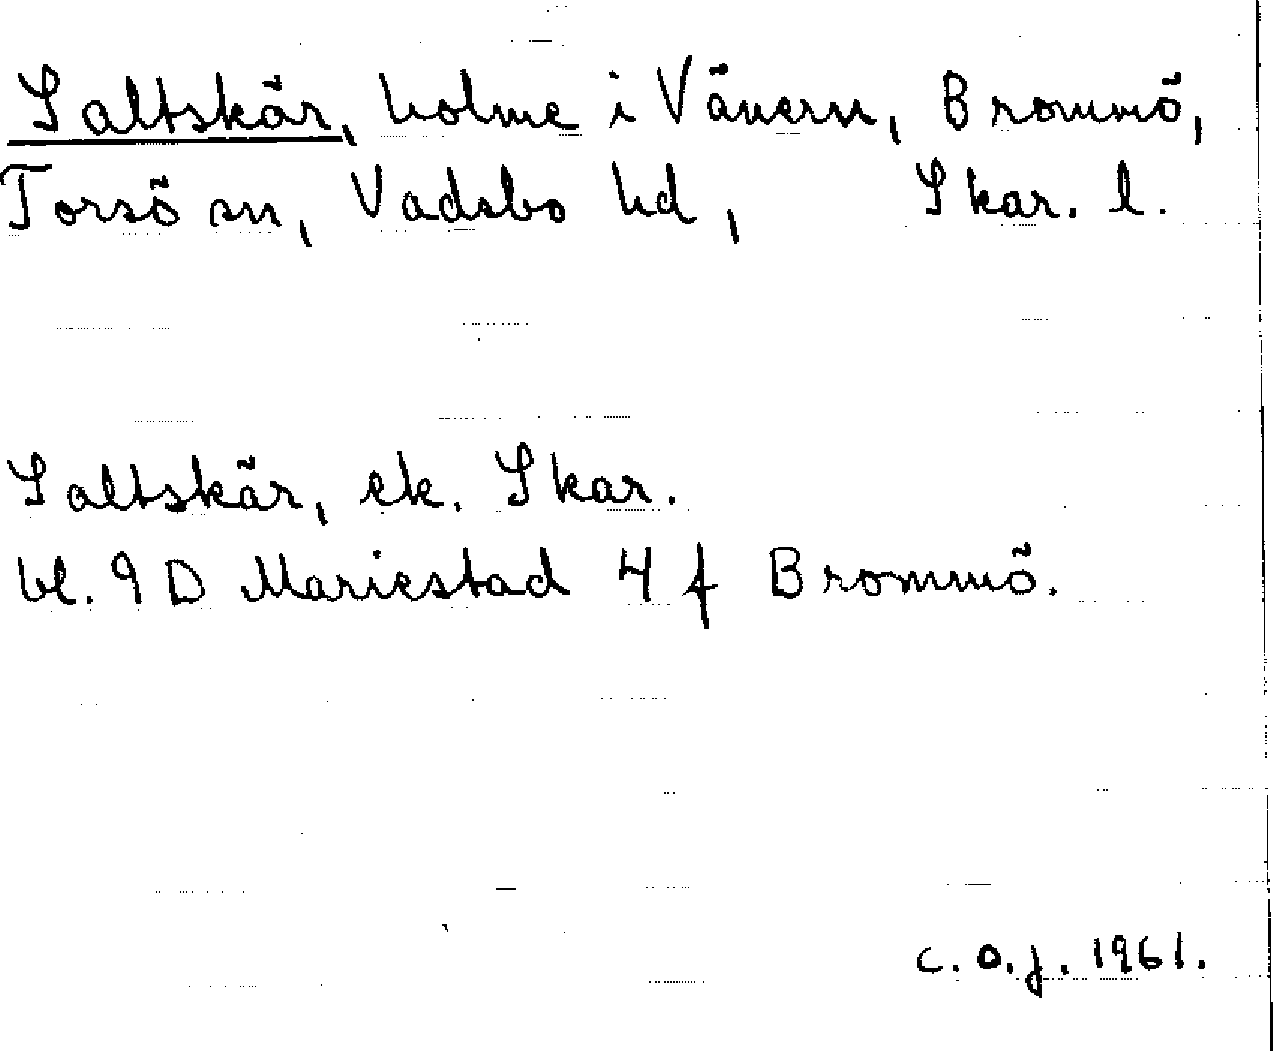 Saltskär, holme i Vänern, Brommö,
Torsö sn, Vadsbo hd, Skar. l.
Saltskär, ek. Skar.
bl. 9 D Mariestad 4 f Brommö.
C.O.J. 1961.